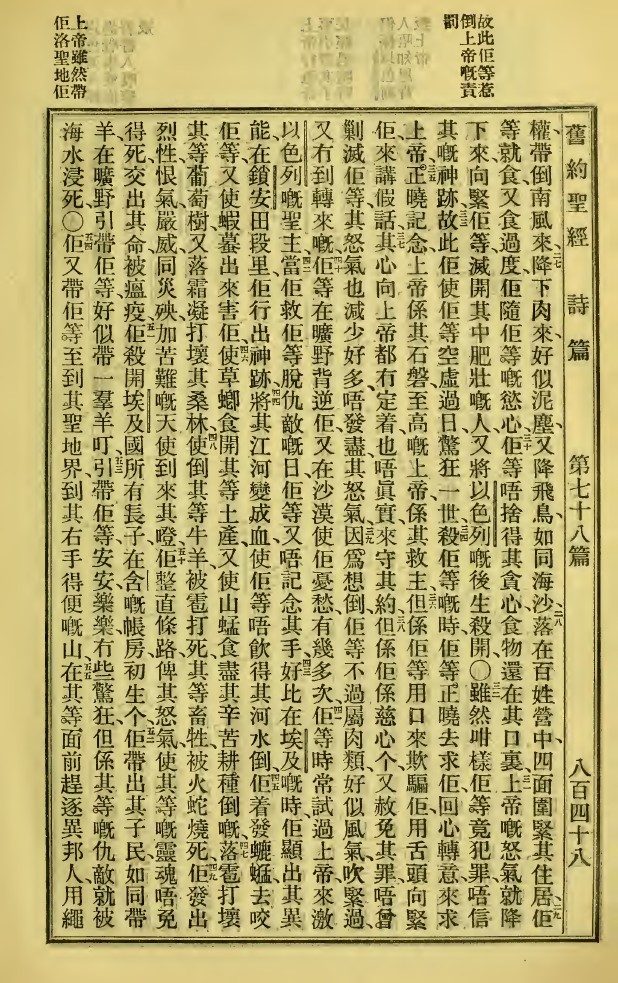 故此佢等惹
倒上帝嘅責
罰
上帝雖然帶
佢洛聖地佢
舊約聖經 詩篇 第七十八篇 八百四十八
權帶倒南風來、二七降下肉來、好似泥塵、又降飛鳥如同海沙、二八落在百姓營中、四面圍緊其住居、二九佢
等就食、又食過度、佢隨佢等嘅慾心、三十佢等唔捨得其貪心、食物還在其口裏、三一上帝嘅怒氣就降
下來向緊佢等、滅開其中肥壯嘅人、又將以色列嘅後生殺開〇三二雖然咁樣、佢等竟犯罪、唔信
其嘅神跡、三三故此佢使佢等空虛過日、驚狂一世、三四殺佢等嘅時、佢等正曉去求佢、回心轉意來求
上帝、三五正曉記念上帝係其石磐、至高嘅上帝係其救主、三六但係佢等用口來欺騙佢、用舌頭向緊
佢來講假話、三七其心向上帝都冇定着、也唔眞實來守其約、三八但係佢係慈心个、又赦免其罪、唔曾
剿滅佢等、其怒氣也減少好多、唔發盡其怒氣、三九因爲想倒佢等不過屬肉類、好似風氣吹緊過、
又冇到轉來嘅、四十佢等在曠野背逆佢、又在沙漠使佢憂愁、有幾多次、四一佢等時常試過上帝來激
以色列嘅聖主、四二當佢救佢等脫仇敵嘅日、佢等又唔記念其手、四三好比在埃及嘅時、佢顯出其異
能、在鎖安田段里、佢行出神跡、四四將其江河變成血、使佢等唔飲得其河水倒、四五佢着發螥蜢去咬
佢等、又使蝦蟇出來害佢、四六使草螂食開其等土產、又使山蜢食盡其辛苦耕種倒嘅、四七落雹打壞
其等葡萄樹、又落霜凝打壞其桑林、四八使倒其等牛羊被雹打死、其等畜牲被火蛇燒死、四九佢發出
烈性恨氣嚴威、同災殃、加苦難嘅天使到來其嶝、五十佢整直條路俾其怒氣、使其等嘅靈魂唔免
得死、交出其命被瘟疫、五一佢殺開埃及國所有長子、在含嘅帳房初生个、五二佢帶出其子民如同帶
羊、在曠野引帶佢等、好似帶一羣羊叮、五三引帶佢等安安樂樂、冇些驚狂、但係其等嘅仇敵就被
海水浸死〇五四佢又帶佢等至到其聖地界、到其右手得便嘅山、五五在其等面前趕逐異邦人、用繩